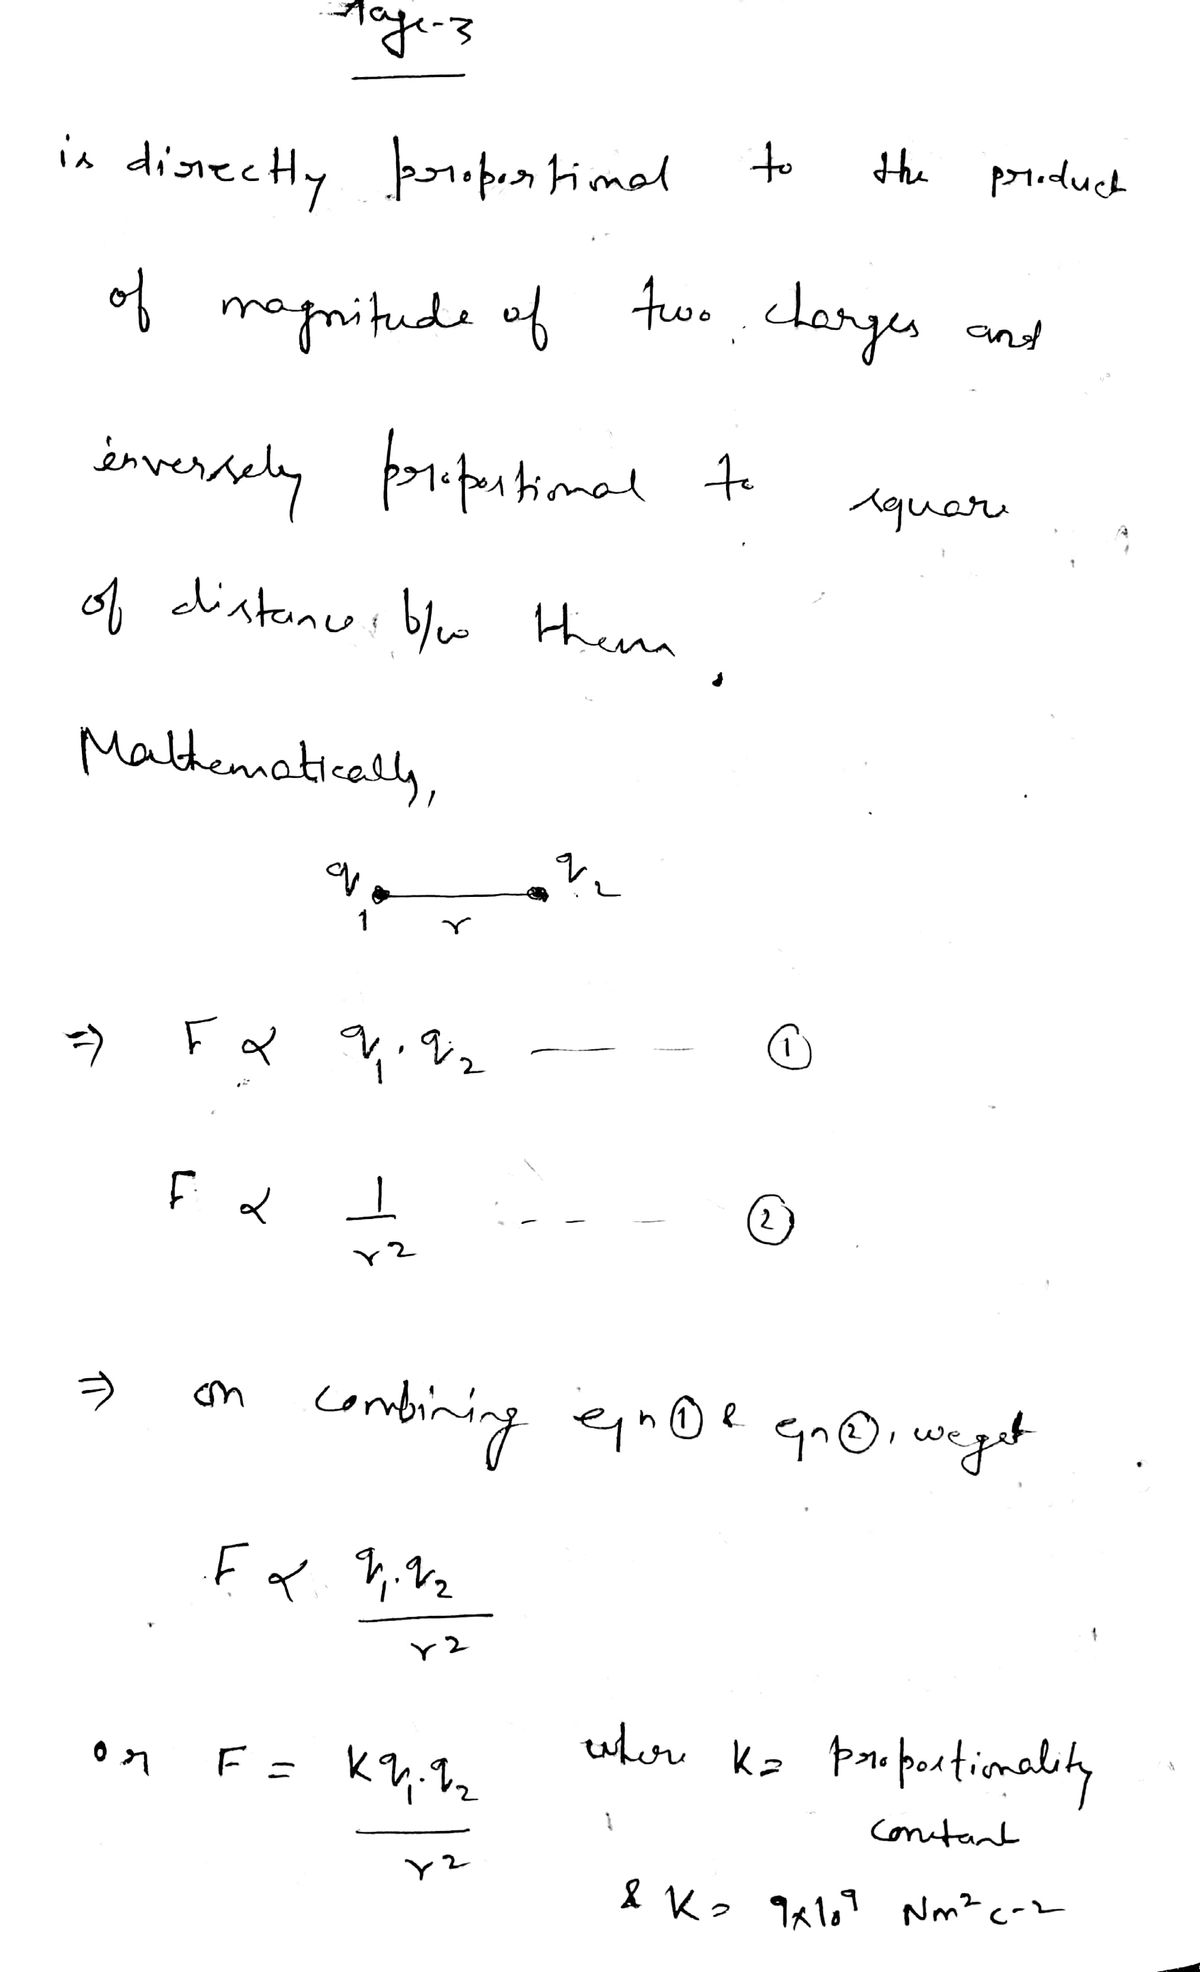 Page-3
is directly proportional to the product
of magnitude of two charges and
inversely proportional to square
of distance b/w them.
Mathematically,
q1 r q2
⇒ F ∝ q1.q2 --- ①
F ∝ 1/r2 --- ②
⇒ on combining eqn① & eqn②, we get
F ∝ q1.q2/r2
or F = Kq1.q2/r2 where K= proportionality
constant
& K= 9x10^9 Nm^2 c-2